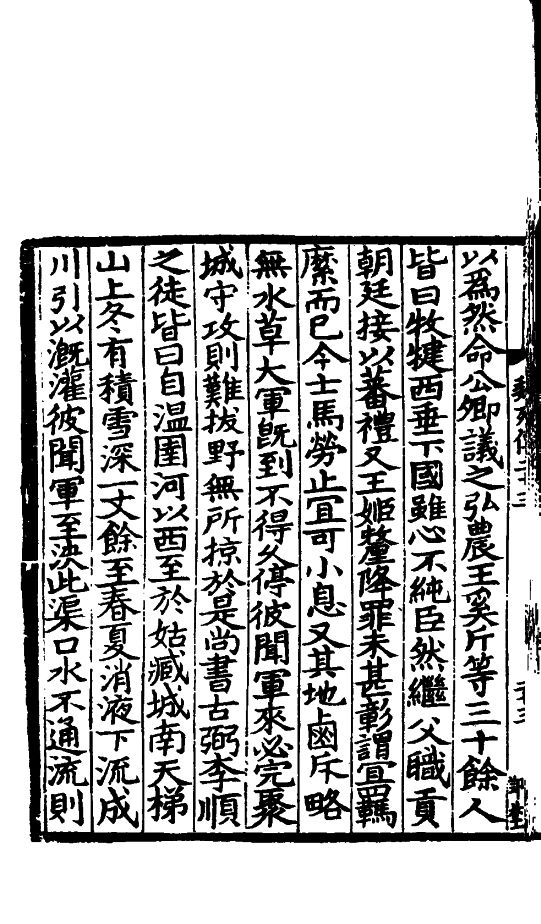 以爲然命公卿議之弘農王奚斤等三十餘人
皆曰牧犍西垂下國雖心不純臣然繼父職貢
朝廷接以蕃禮又王姬釐降罪未甚彰謂宜羈
縻而已今士馬勞止宜可小息又其地鹵斥略
無水草大軍旣到不得久停彼聞軍來必完聚
城守攻則難拔野無所掠於是尚書古弼李順
之徒皆曰自温圉河以西至於姑臧城南天梯
山上冬有積雪深一丈餘至春夏消液下流成
川引以溉灌彼聞軍至决此渠口水不通流則